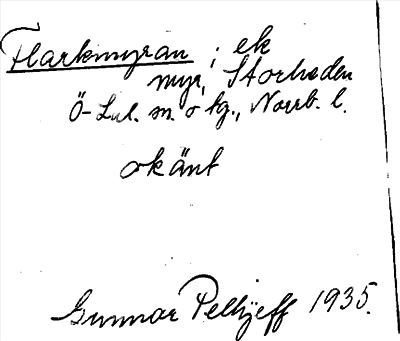 Flarkmyran ; ek
myr, Storheden
Ö-Lul. sn. o tg., Norrb. l.
okänt
Gunnar Pellijeff 1935.